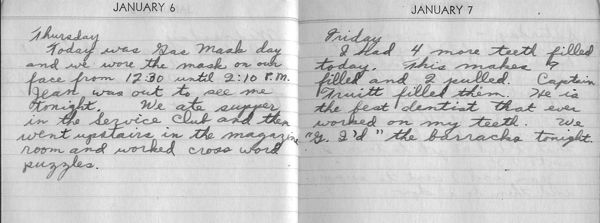 JANUARY 6
Thursday
Today was Gas Mask day
and we wore the mask on our
face from 12:30 until 2:10 P.M.
Jean was out to see me
tonight. We ate supper
in the Service Club and then
went upstairs in the magazine
room and worked cross word
puzzles.
JANUARY 7
Friday
I had 4 more teeth filled
today. This makes 7
filled and 2 pulled. Captain
Truitt filled them. He is
the best dentist that ever
worked on my teeth. We
"G. I'd" the barracks tonight.